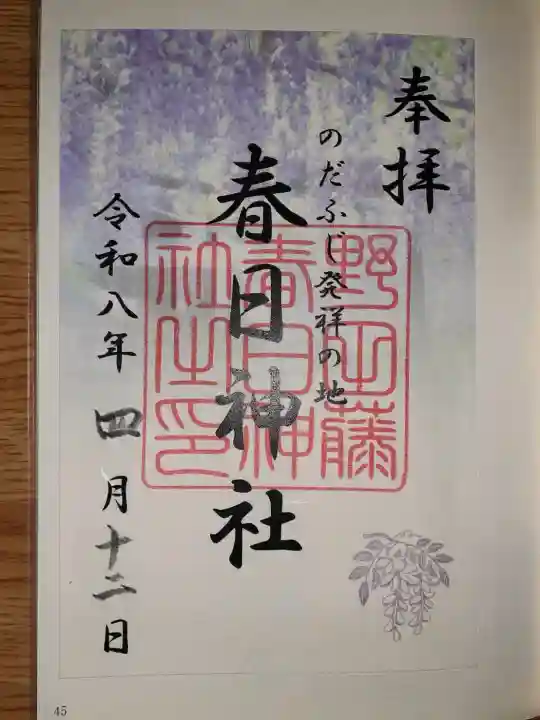 奉拝
のだふじ発祥の地
春日神社
野田藤
春日神
社之印
令和八年 四月十二日
45